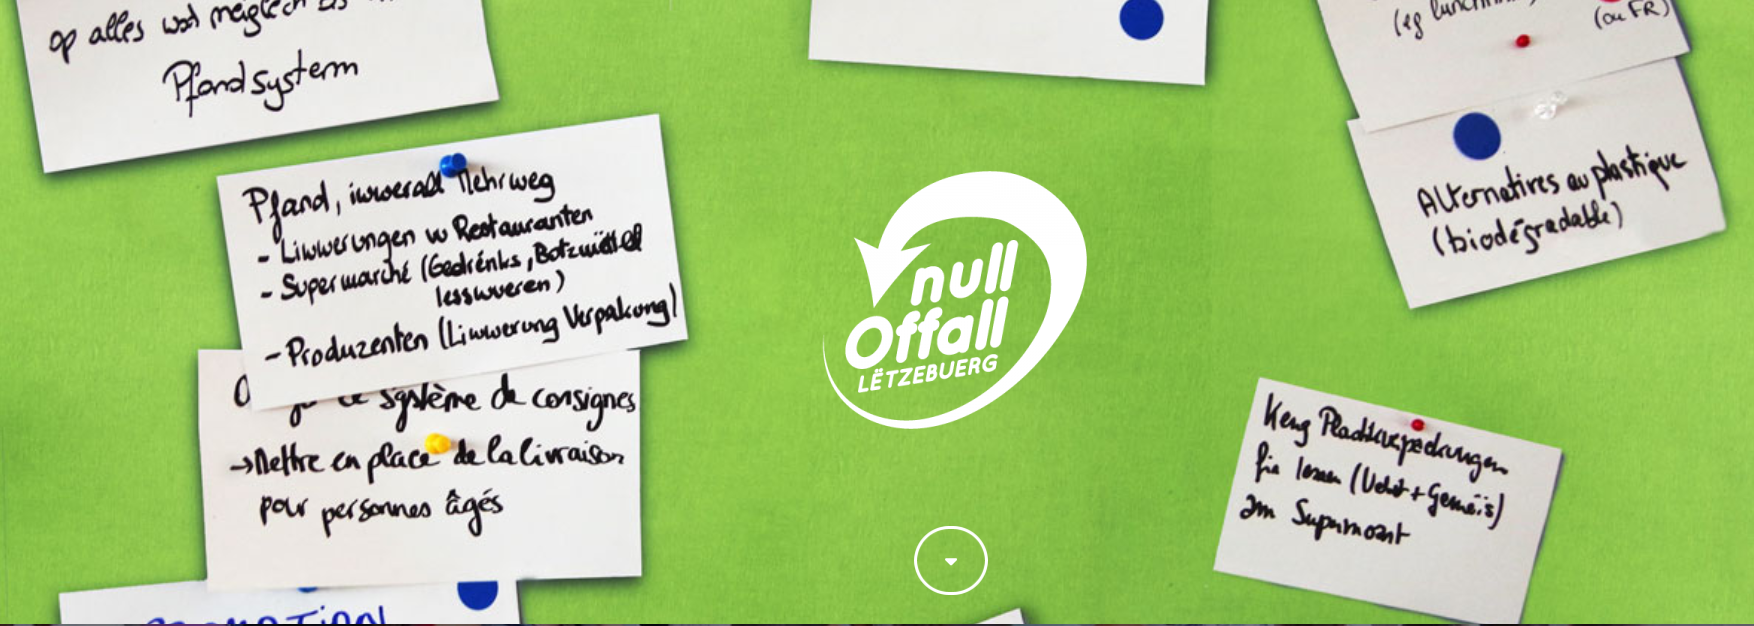 op alles wat méiglech as
Pfandsystem
Pfand, iwwerall Mehrweg
- Liwwerungen w Restauranten
- Supermarché (Gedrénks, Botzmëttel
lesswueren)
- Produzenten (Liwwerung Verpakung)
système de consignes
→ Mettre en place de la livraison
pour personnes âgés
null
Offall
LËTZEBUERG
(eg lunch
(ou FR)
Alternatives au plastique
(biodégradable)
Keng Plastikverpackungen
fir (Uebst + Geméis)
am Supermart